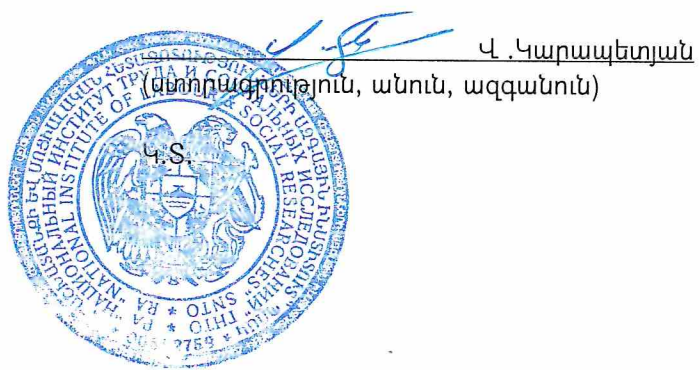 Վ .Կարապետյան
(ստորագրություն, անուն, ազգանուն)
Կ.Տ.
"НАЦИОНАЛЬНЫЙ ИНСТИТУТ ТРУДА И СОЦИАЛЬНЫХ ИССЛЕДОВАНИЙ" ГНТО * РА
"NATIONAL INSTITUTE OF LABOUR & SOCIAL RESEARCHES" SNTO * RA